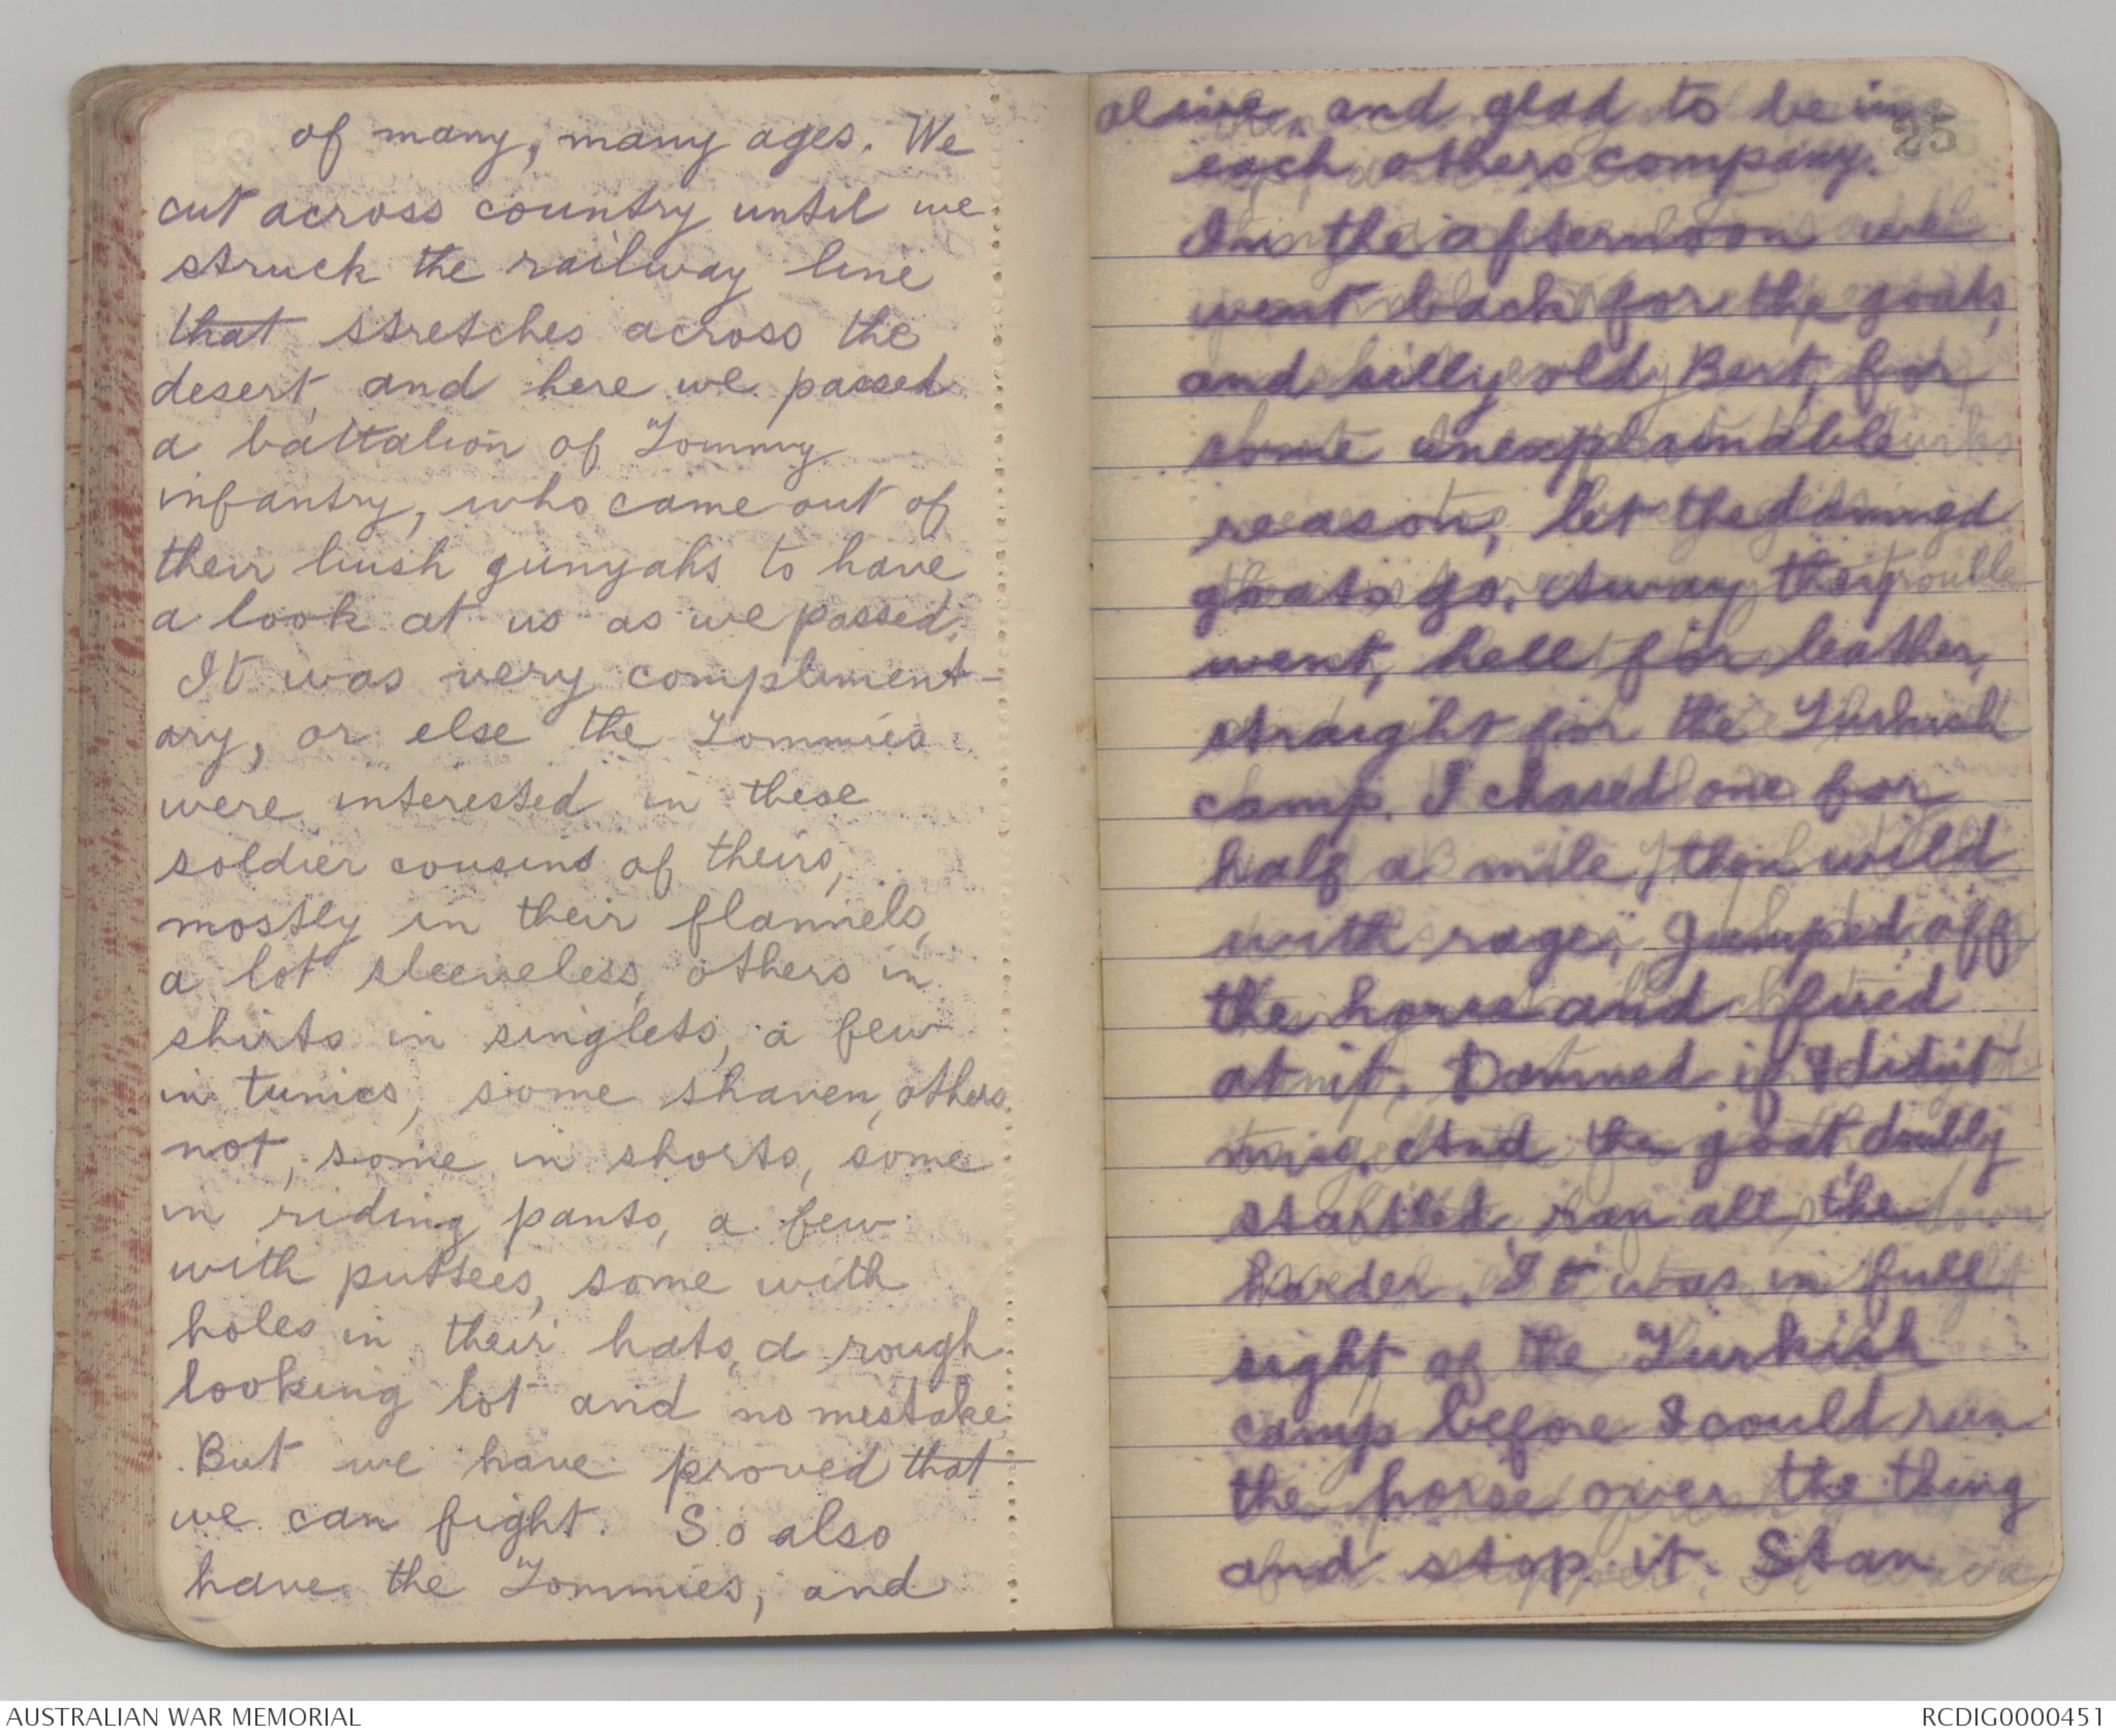 of many, many ages. We
cut across country until we
struck the railway line
that stretches across the
desert, and here we passed
a battalion of Tommy
infantry, who came out of
their bush gunyahs to have
a look at us as we passed.
It was very compliment-
ary, or else the Tommies
were interested in these
soldier cousins of theirs,
mostly in their flannels,
a lot sleeveless, others in
shirts in singlets, a few
in tunics, some shaven, others
not, some in shorts, some
in riding pants, a few
with puttees, some with
holes in their hats, a rough
looking lot and no mistake.
But we have proved that
we can fight. So also
have the Tommies, and
25
alive, and glad to be in
each others company.
In the afternoon we
went back for the goats,
and silly old Bert, for
some unexplainable
reason, let the damned
goats go. Away they
went, hell for leather,
straight for the Turkish
camp. I chased one for
half a mile, then wild
with rage, jumped off
the horse and fired
at it. Damned if I didn't
miss. And the goat doubly
startled, ran all the
harder. It was in full
sight of the Turkish
camp before I could run
the horse over the thing
and stop it. Stan
AUSTRALIAN WAR MEMORIAL
RCDIG0000451